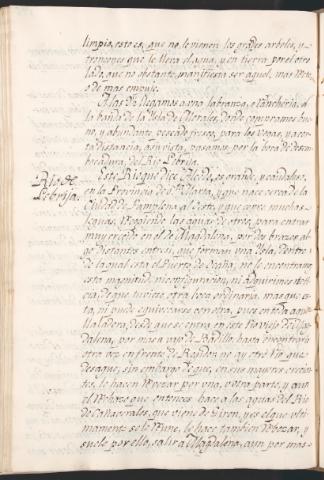 limpio, esto es, que no le vienen los grades arboles, y
troncones que le lleva el agua, y en tierra por el otro
lado, que no obstante, manifiesta ser aquel, mas
de mas
A las dos llegamos a una labranza, o rancheria, a
la banda de la Ysla de Morales, donde compramos bue
no, y abundante pescado fresco, para los vogas, y a cor
ta distancia, a su vista, pasamos por la boca de desem
bocadura, del Rio Lebrija.
Rio de
Lebrija.
Este Rio que dice Alcedo, es grande, y caudaloso,
en la Provincia de S.ta Marta, y que nace cerca de la
Ciudad de Pamplona al Este, y que corre muchas
leguas, recogiendo las aguas de otros, para entrar
muy crecido en el de Magdalena, por dos brazos al
go distantes entre si, que forman una Ysla, dentro
de la qual esta el Puerto de Ocaña; no le encontramos
esta magnitud, ni configuracion, ni adquirimos noti
cia, de que tuviese otra boca ordinaria, mas que es
ta, ni puede equivocarse con otra, pues en toda aque
lla ladera, desde que se entra en este Rio viejo de Mag
dalena, por mas a vajo de Badillo hasta encontrarlo
otra vez enfrente de Regidor no ay otro Rio que
desague, sin embargo de que, en sus mayores crecien
tes, le hacen rebozar por una, y otra parte, y aun
el rebozo que entonces hace a las aguas del Rio
de Cañaverales, que viene de Giron, y es el que ulti
mamente se le reune, le hace tambien rebozar, y
suele por ello, salir a Magdalena, aun por mas